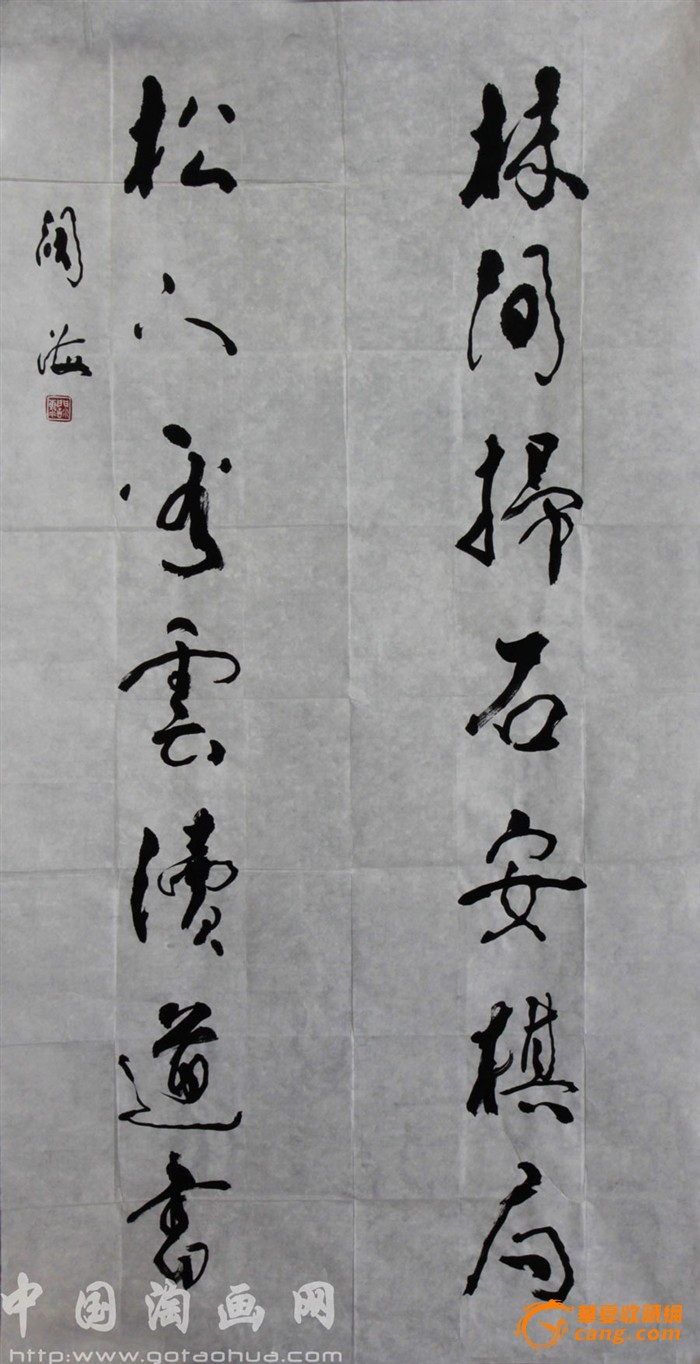 林間掃石安棋局
松下雲讀道書
海
中国淘画网
http://www.gotaohua.com
華夏收藏網
cang.com